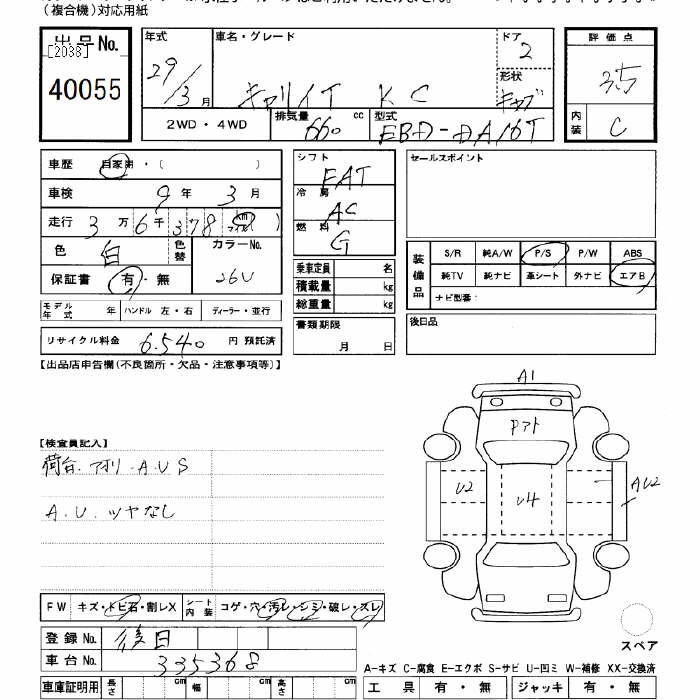 (複合機)対応用紙
出品No.
[2038]
40055
年式
29/3月
車名・グレード
キャリイT KC
ドア
2
形状
キャブ
2WD・4WD
排気量
660 cc
型式
EBD-DA16T
評価点
3.5
内装
C
車歴 自家用・( )
車検 9年 3月
走行 3万6千378 km マイル )
色 白 色替
カラーNo.
26U
保証書 有・無
モデル年式 年 ハンドル 左・右 ディーラー・並行
リサイクル料金 6.540 円 預託済
シフト
FAT
冷房
AC
燃料
G
乗車定員 名
積載量 kg
総重量 kg
書類期限
月 日
セールスポイント
装備品
S/R 純A/W P/S P/W ABS
純TV 純ナビ 革シート 外ナビ エアB
ナビ型番:
後日品
【出品店申告欄(不良箇所・欠品・注意事項等)】
【検査員記入】
荷台.アオリ.A.U S
A.U.ツヤなし
A1
Pアト
U2
U4
AU2
スペア
FW キズ・トビ石・割レX シート内装 コゲ・穴・汚レ・シミ・破レ・スレ
登録No. 後日
車台No. 335368
車庫証明用 長さ cm 幅 cm 高さ cm
A-キズ C-腐食 E-エクボ S-サビ U-凹ミ W-補修 XX-交換済
工具 有・無 ジャッキ 有・無